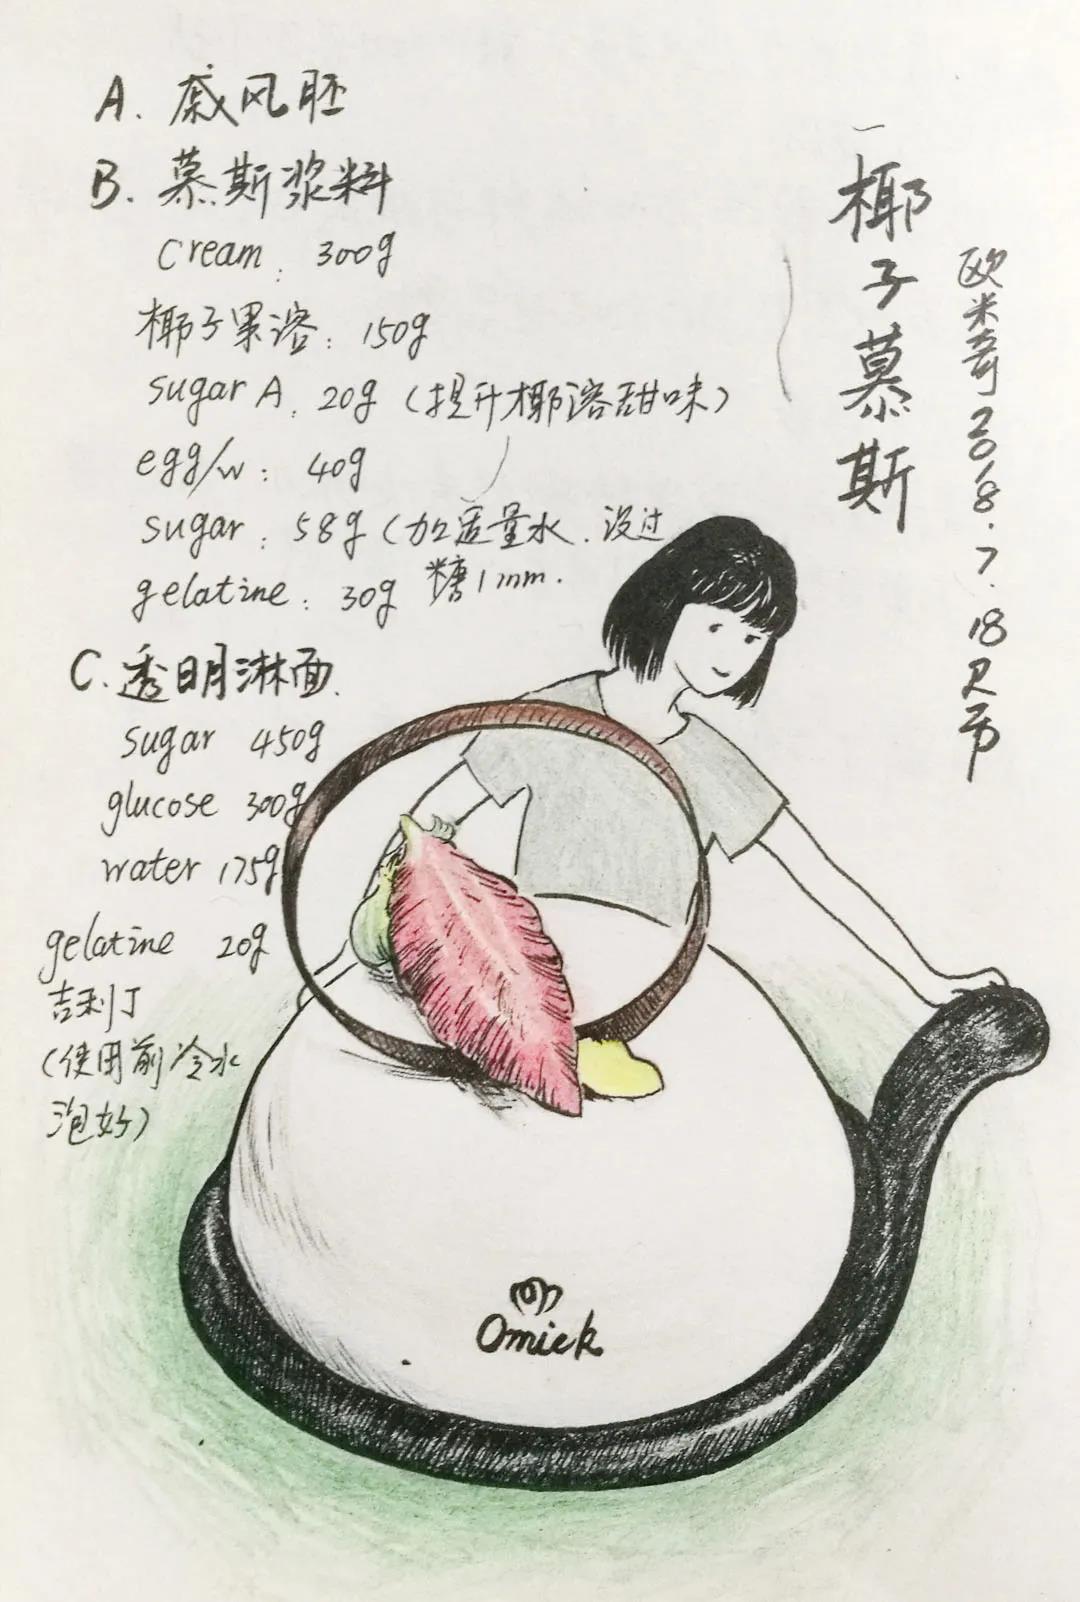 A. 戚风胚
B. 慕斯浆料
cream: 300g
椰子果溶: 150g
sugar A: 20g (提升椰溶甜味)
egg/w: 40g
sugar: 58g (加适量水. 没过
糖1mm.
gelatine: 30g
C. 透明淋面.
sugar 450g
glucose 300g
water 175g
gelatine 20g
吉利丁
(使用前冷水
泡好)
椰子慕斯
欧米奇 2018.7.18
Omick